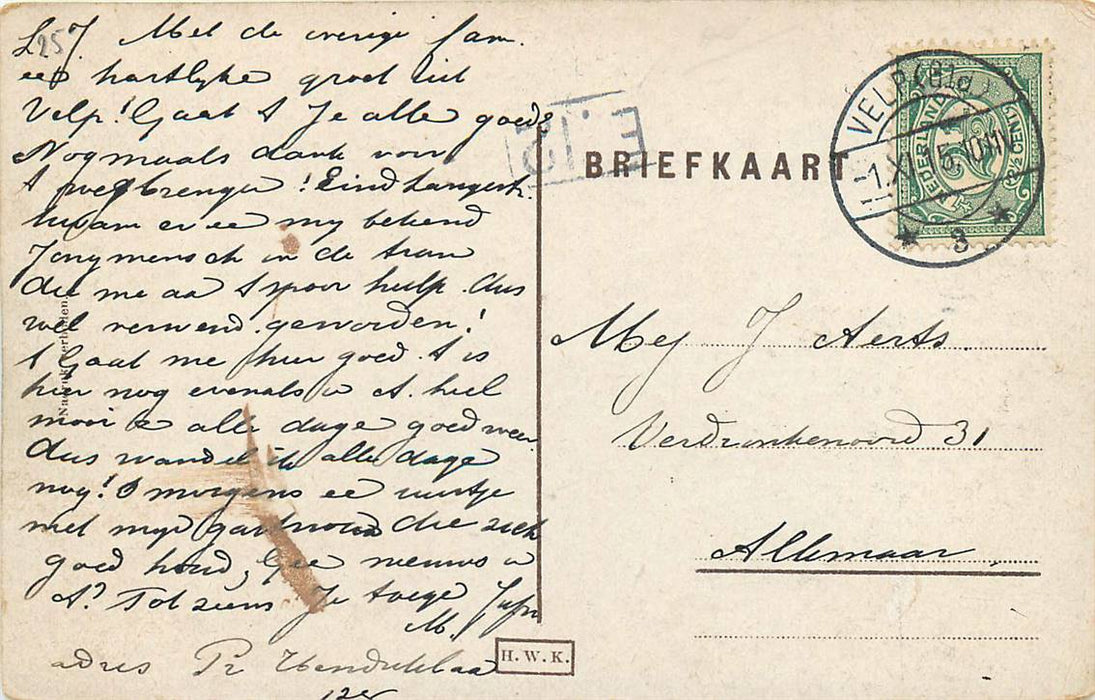 L. J. Met de overige fam.
ee hartlyke groet uit
Velp! Gaat t Je alle goed?
Nogmaals dank voor
t wegbrengen! Eind
kwam er ee my bekend
Jongmensch in de tram
die me aa t spoor hielp. Dus
wel verwend geworden!
t Gaat me hier goed. t is
hier nog evenals i A. heel
mooi e alle dage goed weer
dus wandel ik alle dage
nog! S morgens ee uurtje
met myn die zich
goed houd, Gee nieuws i
A? Tot ziens. Je toege
M.
adres Pr Hendriklaa
128
25
BRIEFKAART
VELP (Gld)
-1.XI.15.
3
NEDERLAND
2½ CENT
Mej J Aerts.
Verdronkenoord 31
Alkmaar
H.W.K.